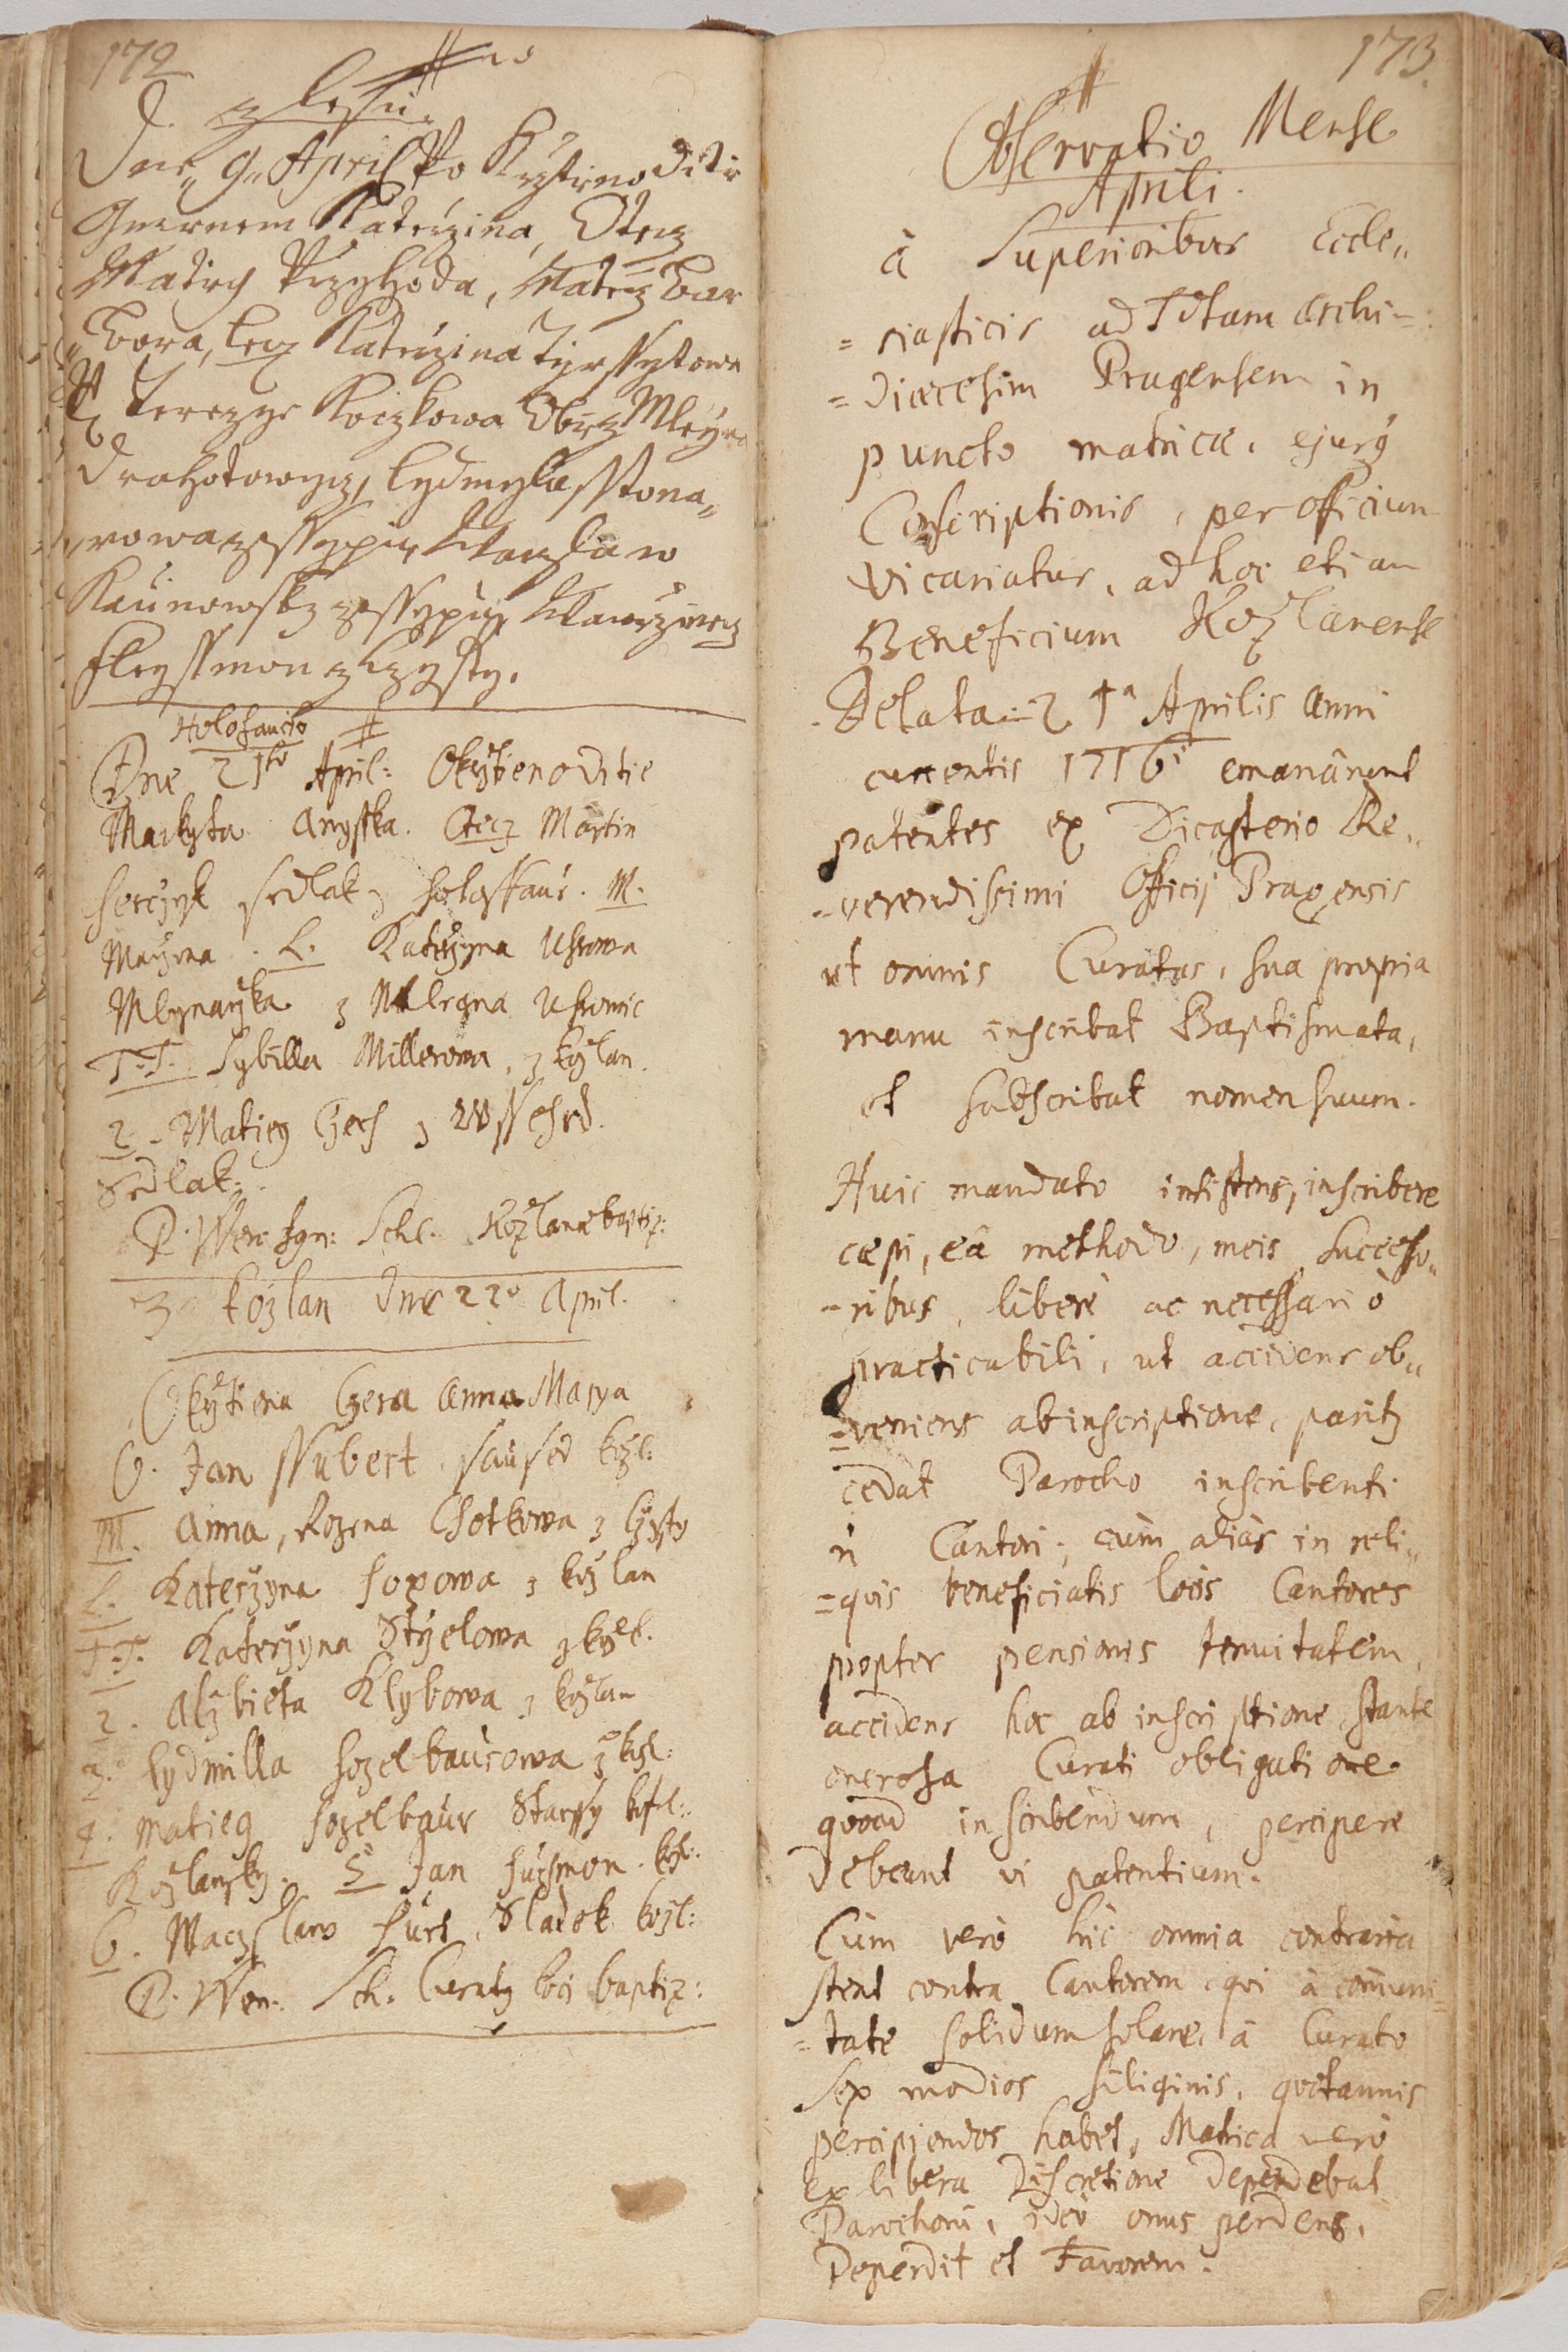 172
z Lhu.
Dne 9. April Po Krztieno ditie
Gmenem Katerzina, Otecz
Matieg Przyhoda, Materz Bar
bora, Lev. Katerzina Tyrssytowa
Terezye Koczkowa Obie z Mleyna
Drahotowyz, Lydmyla sstona„
rowa z Wacslaw
Kaunowsky z Wawrzinecz
Fleyssmon z Czysty.
Holofaucio
Dne 21ho April: Okrztieno ditie
Markyta Anysska. Otecz Martin
Herczyk sedlak z Holossaus. M.
Mayrna. L. Katerzyna Ussowa
Mlynarzka z Mleyna Ussowic
T.T. Sybilla Millerowa, z kozlan.
2. Matieg Czech z Wssehrd.
Sedlak.
P. Wen. Ign: Schl. Kozlanae baptiz:
Z Kozlan dne 22º April.
Okrztiena Czera Anna Marya
O. Jan Ssubert saused kozl:
M. Anna, Rozena Chotkowa z Czysty
L. Katerzyna Foxowa z kozlan
T.T. Katerzyna Styelowa z kozl.
2. Alzbieta Klybowa z kozlan
3. Lydmilla Hozelbaurowa z kozl:
4. Matieg Hozelbaur Starssy
Kozlansky. 5 Jan Fuchsmon. kozl:
6. Waczslaw Fürst, Sladek kozl:
P. Wen. Sch. Curatus loci baptiz:
173.
Observatio Mense
Aprili.
à Superioribus Eccle„
=siasticis ad Totam Archi=
=diaecesim Pragensem in
puncto matricae, ejusq
Conscriptionis, per officium
Vicariatus, ad hoc etiam
Beneficium Kozlanense
Delata: 21ª Aprilis anni
currentis 1716i emanârunt
patentes ex Dicasterio Re„
=verendissimi Officij Pragensis
ut omnis Curatus, sua propria
manu inscribat Baptismata,
et subscribat nomen suum.
Huic mandato insistens, inscribere
caepi, eâ methodo, meis successo„
=ribus, liberè ac necessariò
practicabili, ut accidens ob„
=veniens ab inscriptione, paritz
cedat Parocho inscribenti
ñ Cantori; cum aliàs in reli„
=quis beneficiatis locis Cantores
propter pensionis tenuitatem,
accidens hoc ab inscriptione, stante
onerosa Curati obligatione
quoad inscribendum, percipere
debeant vi patentium.
Cum verò hic omnia contraria
stent contra Cantorem, qui à comuni=
=tate solidum solare, à Curato
sex modios siliginis, quotannis
percipiendos habet, Matrica verò
ex libera Discretione dependebat
Parochorũ, ideò onus perdens,
Deperdit et Favorem.